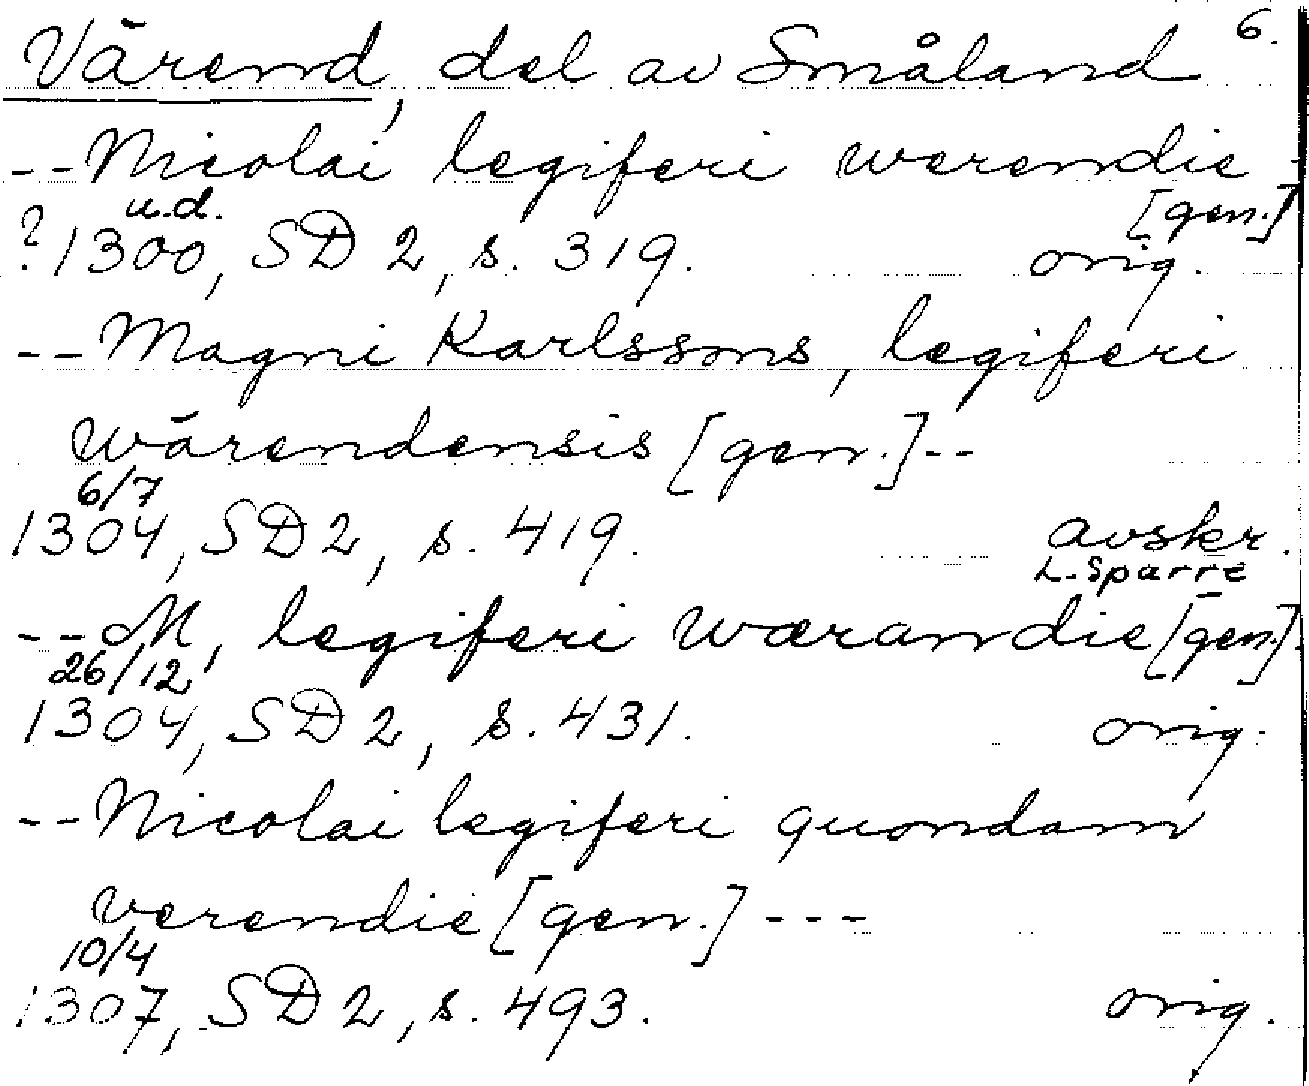 6.
Värend, del av Småland
--Nicolai legiferi werendie -
u.d. [gen.]
?1300, SD 2, s. 319. orig.
--Magni Karlssons, legiferi
wärendensis [gen.]--
6/7
1304, SD 2, s. 419. avskr.
L. Sparre
--M, legiferi wærandie [gen.].
26/12
1304, SD 2, s. 431. orig.
--Nicolai legiferi quondam
verendie [gen.] ---
10/4
1307, SD 2, s. 493. orig.